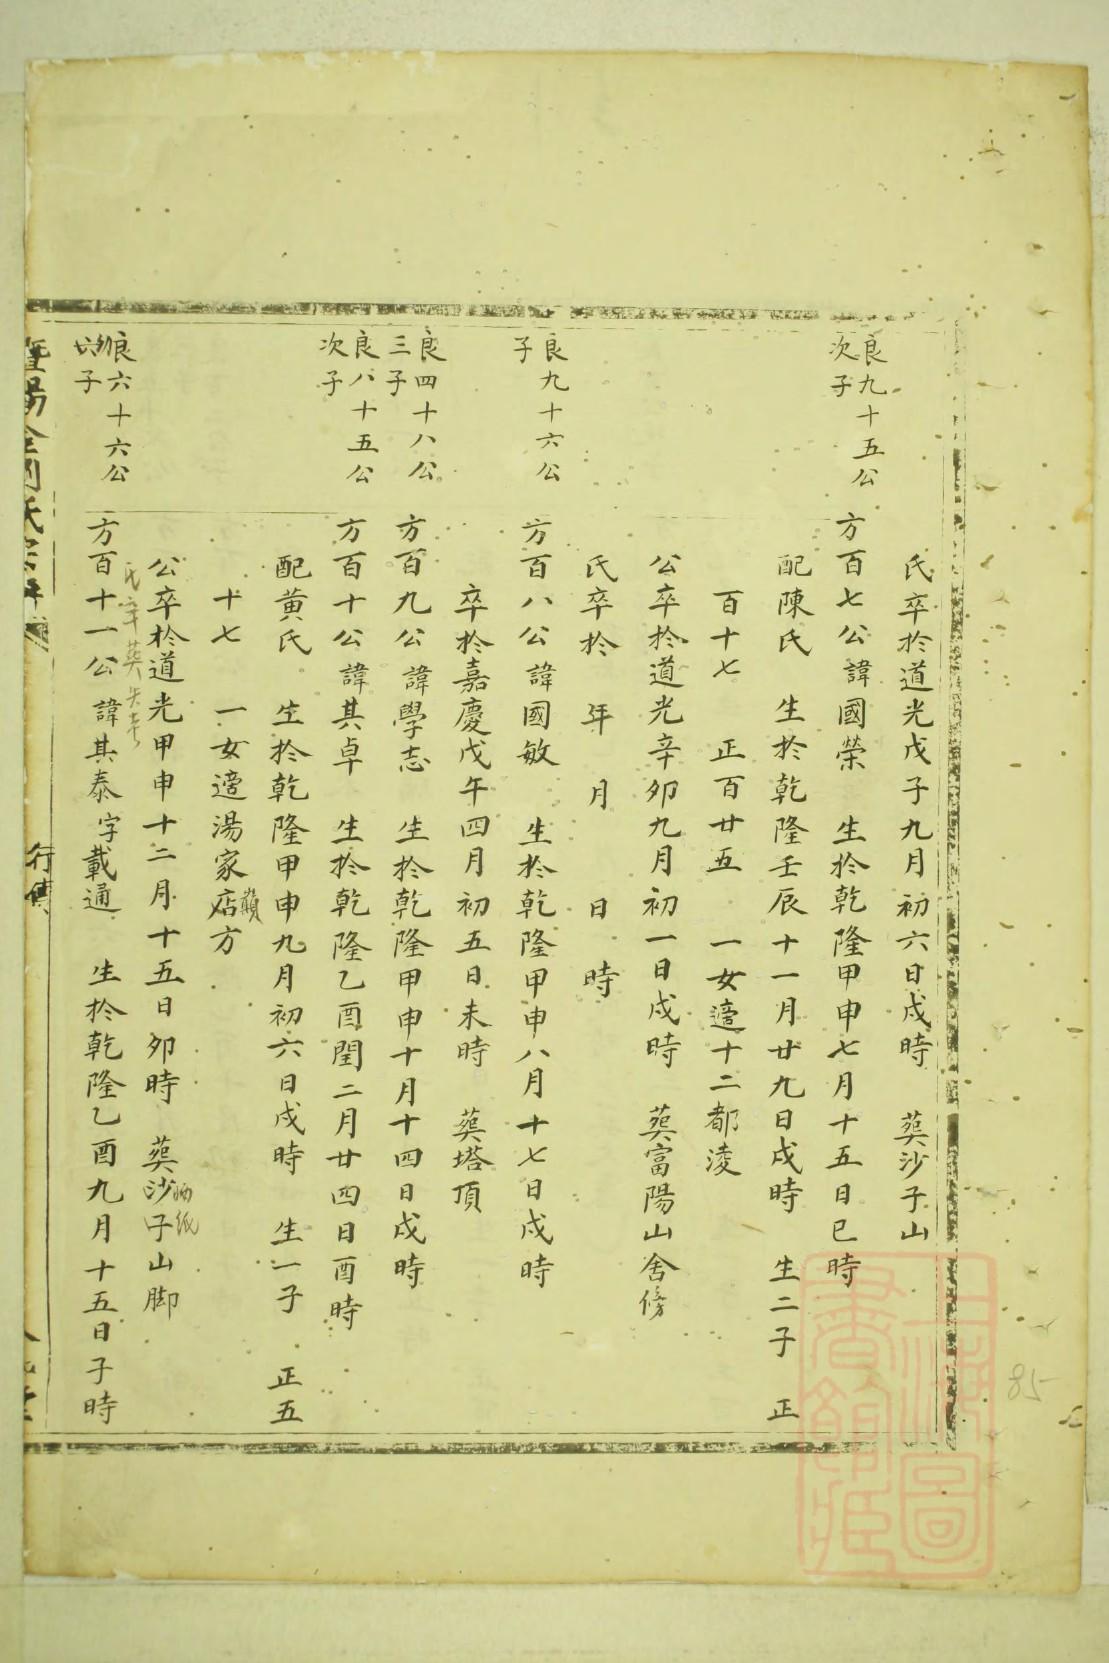 氏卒於道光戊子九月初六日戌時　塟沙子山
良九十五公
次子
方百七公諱國榮　生於乾隆甲申七月十五日巳時
配陳氏　生於乾隆壬辰十一月廿九日戌時　生二子　正
百十七　正百廿五　一女適十二都淩
公卒於道光辛卯九月初一日戌時　塟富陽山舍傍
氏卒於　年　月　日　時
良九十六公
子
方百八公諱國敏　生於乾隆甲申八月十七日戌時
卒於嘉慶戊午四月初五日未時　塟塔頂
良四十八公
三子
方百九公諱學志　生於乾隆甲申十月十四日戌時
良八十五公
次子
方百十公諱其卓　生於乾隆乙酉閏二月廿四日酉時
配黄氏　生於乾隆甲申九月初六日戌時　生一子　正五
十七　一女適湯家店方
公卒於道光甲申十二月十五日卯時　塟沙子山脚
氏卒塟失考
良六十六公
子
方百十一公諱其泰字載通　生於乾隆乙酉九月十五日子時
行傳
上海圖書館藏
85